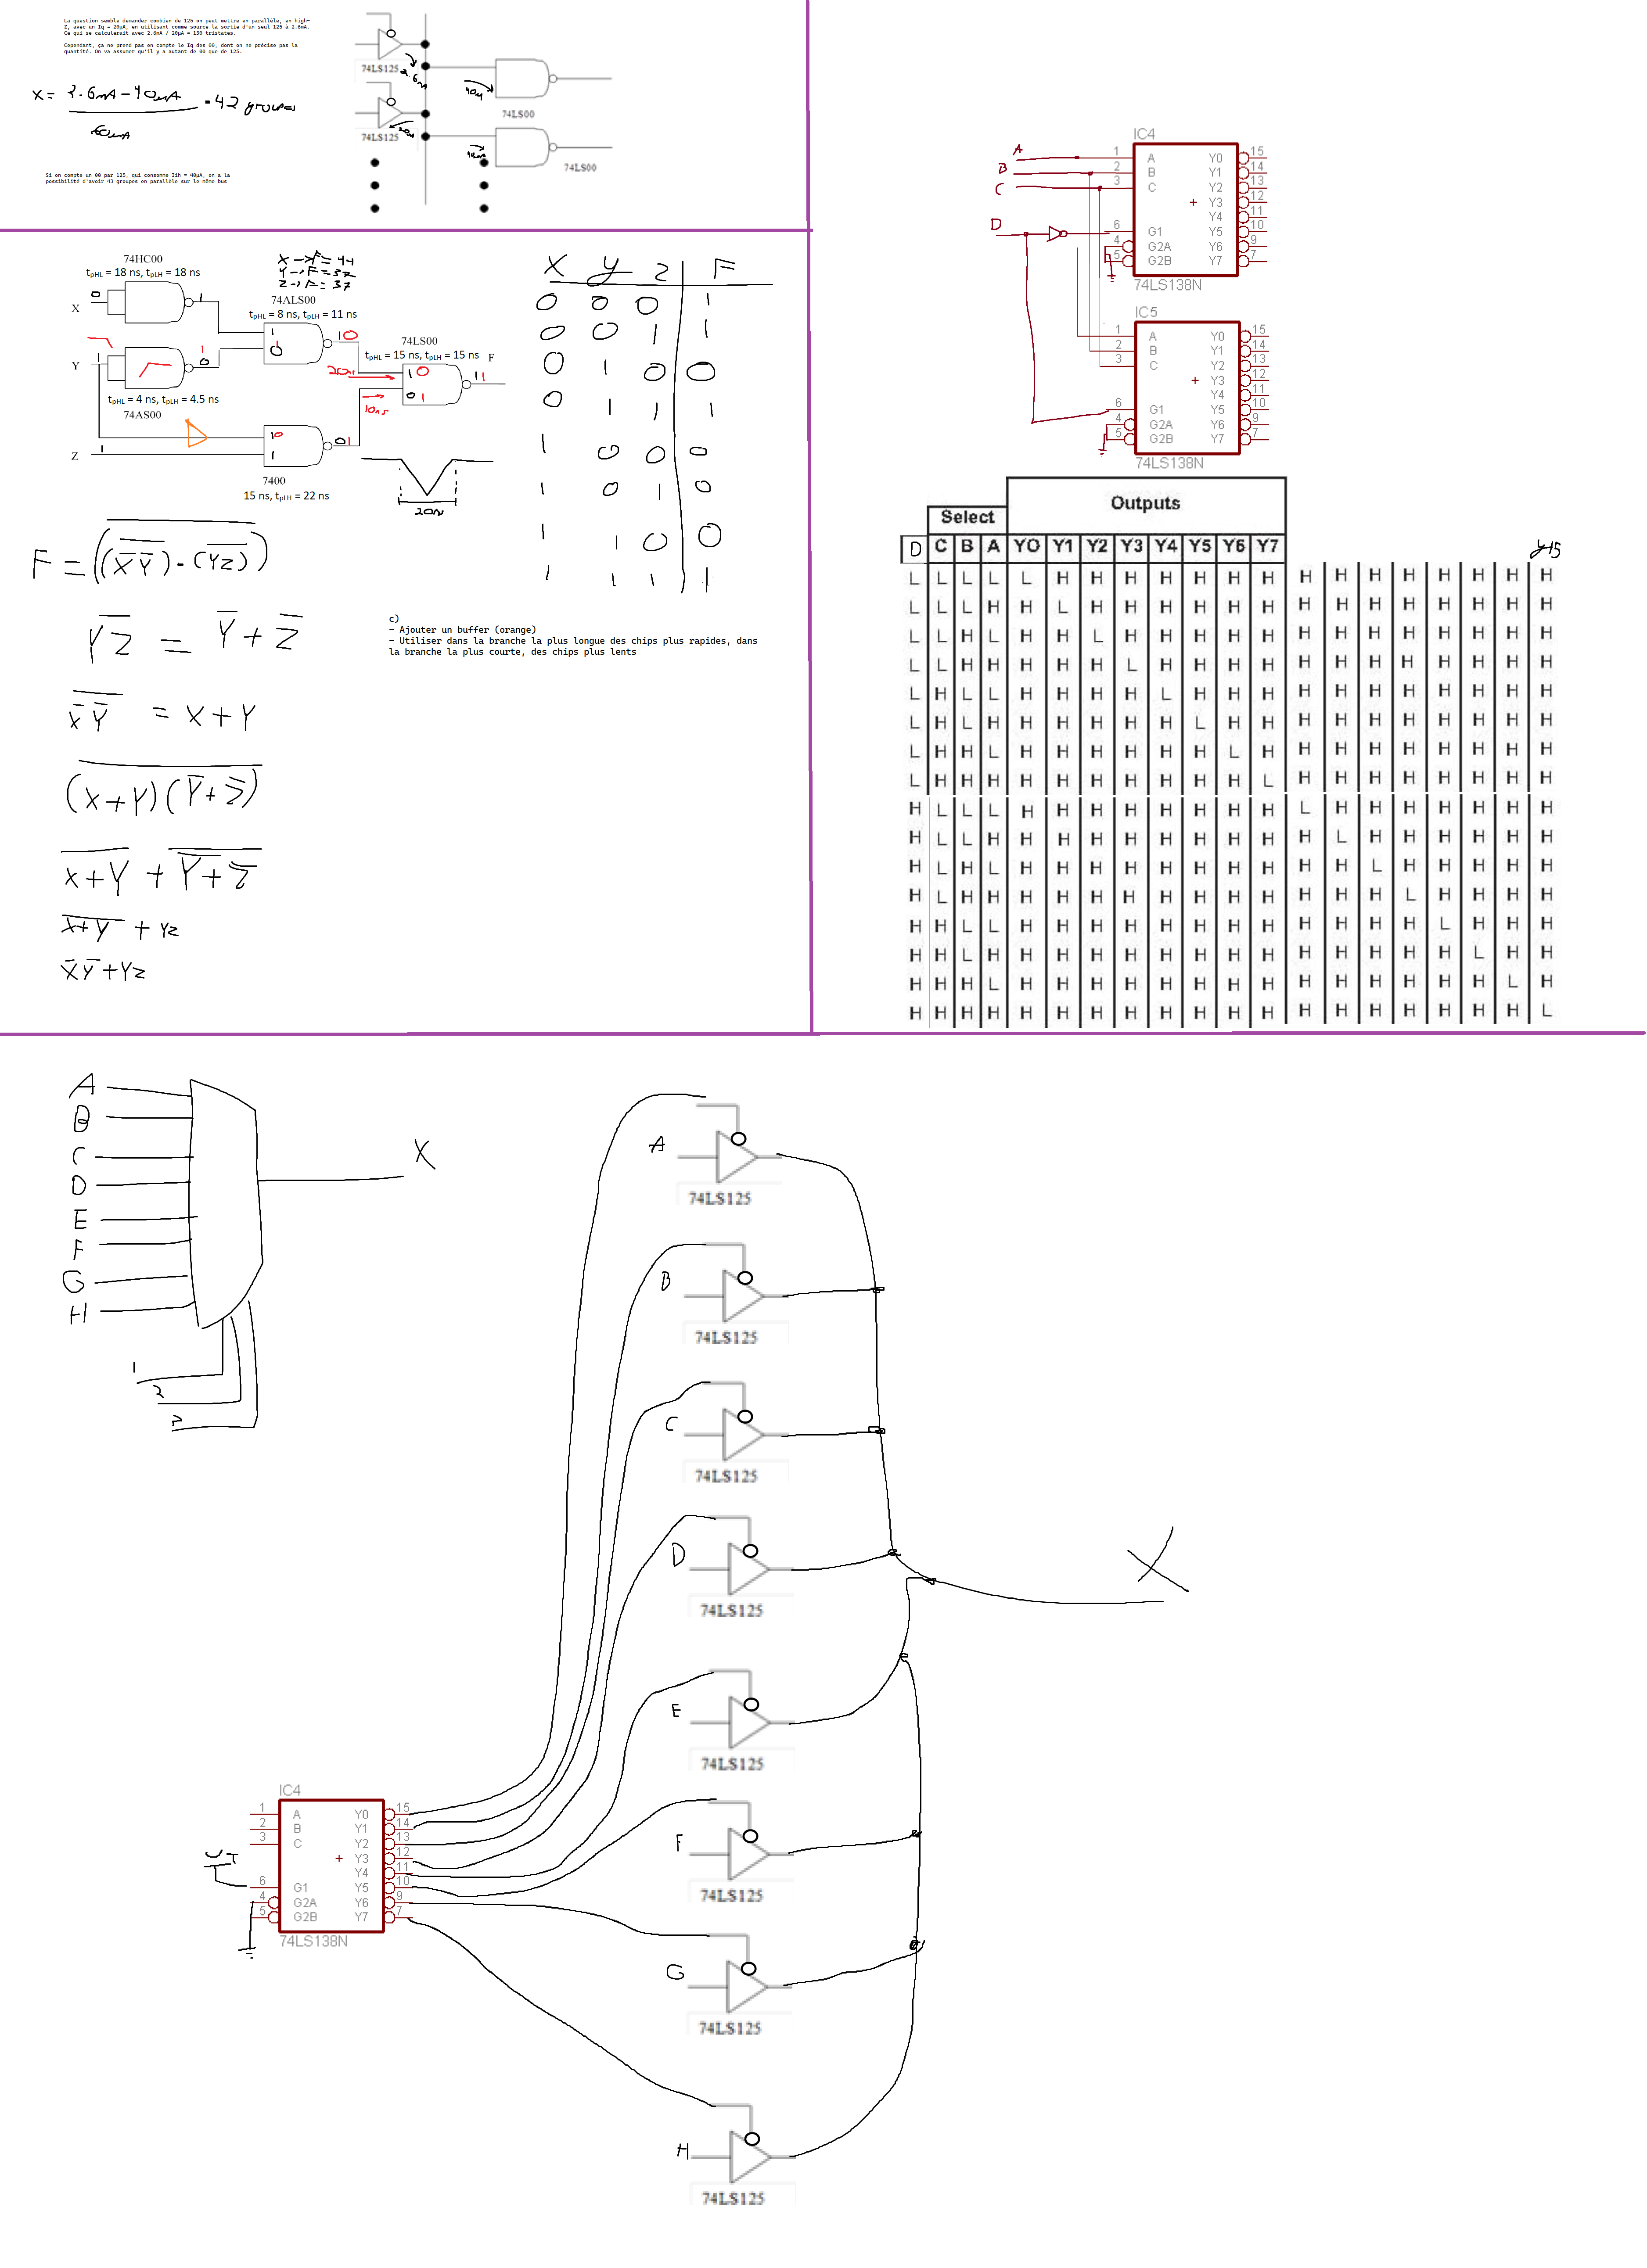 La question semble demander combien de 125 on peut mettre en parallèle, en high-
Z, avec un Iq = 20µA, en utilisant comme source la sortie d'un seul 125 à 2.6mA.
Ce qui se calculerait avec 2.6mA / 20µA = 130 tristates.
Cependant, ça ne prend pas en compte le Iq des 00, dont on ne précise pas la
quantité. On va assumer qu'il y a autant de 00 que de 125.
X = 2.6mA - 40uA = 42 groupes
60uA
Si on compte un 00 par 125, qui consomme Iih = 40µA, on a la
possibilité d'avoir 43 groupes en parallèle sur le même bus
74LS125
2.6m
40u
74LS00
74LS125
20u
74LS00
74HC00
tpHL = 18 ns, tpLH = 18 ns
X → F = 44
Y → F = 37
Z → F = 37
74ALS00
tpHL = 8 ns, tpLH = 11 ns
X
0
1
1
0
1 0
74LS00
tpHL = 15 ns, tpLH = 15 ns
F
Y
1
1
0
20ns
1 0
0 1
1 1
10ns
tpHL = 4 ns, tpLH = 4.5 ns
74AS00
1 0
1
0 1
Z
1
7400
15 ns, tpLH = 22 ns
20ns
X Y Z F
0 0 0 1
0 0 1 1
0 1 0 0
0 1 1 1
1 0 0 0
1 0 1 0
1 1 0 0
1 1 1 1
F = ((X̅Y̅)‾ · (YZ)‾)‾
(YZ)‾ = Y̅ + Z̅
(X̅Y̅)‾ = X + Y
((X+Y)(Y̅+Z̅))‾
(X+Y)‾ + (Y̅+Z̅)‾
(X+Y)‾ + YZ
X̅Y̅ + YZ
c)
- Ajouter un buffer (orange)
- Utiliser dans la branche la plus longue des chips plus rapides, dans
la branche la plus courte, des chips plus lents
A
B
C
D
IC4
1 A Y0 15
2 B Y1 14
3 C Y2 13
+ Y3 12
Y4 11
6 G1 Y5 10
4 G2A Y6 9
5 G2B Y7 7
74LS138N
IC5
1 A Y0 15
2 B Y1 14
3 C Y2 13
+ Y3 12
Y4 11
6 G1 Y5 10
4 G2A Y6 9
5 G2B Y7 7
74LS138N
Outputs
Select
D C B A Y0 Y1 Y2 Y3 Y4 Y5 Y6 Y7 Y15
L L L L L H H H H H H H H H H H H H H H
L L L H H L H H H H H H H H H H H H H H
L L H L H H L H H H H H H H H H H H H H
L L H H H H H L H H H H H H H H H H H H
L H L L H H H H L H H H H H H H H H H H
L H L H H H H H H L H H H H H H H H H H
L H H L H H H H H H L H H H H H H H H H
L H H H H H H H H H H L H H H H H H H H
H L L L H H H H H H H H L H H H H H H H
H L L H H H H H H H H H H L H H H H H H
H L H L H H H H H H H H H H L H H H H H
H L H H H H H H H H H H H H H L H H H H
H H L L H H H H H H H H H H H H L H H H
H H L H H H H H H H H H H H H H H L H H
H H H L H H H H H H H H H H H H H H L H
H H H H H H H H H H H H H H H H H H H L
A
B
C
D
E
F
G
H
X
1
2
A
74LS125
B
74LS125
C
74LS125
D
74LS125
X
E
74LS125
F
74LS125
G
74LS125
H
74LS125
IC4
1 A Y0 15
2 B Y1 14
3 C Y2 13
+ Y3 12
Y4 11
6 G1 Y5 10
4 G2A Y6 9
5 G2B Y7 7
74LS138N